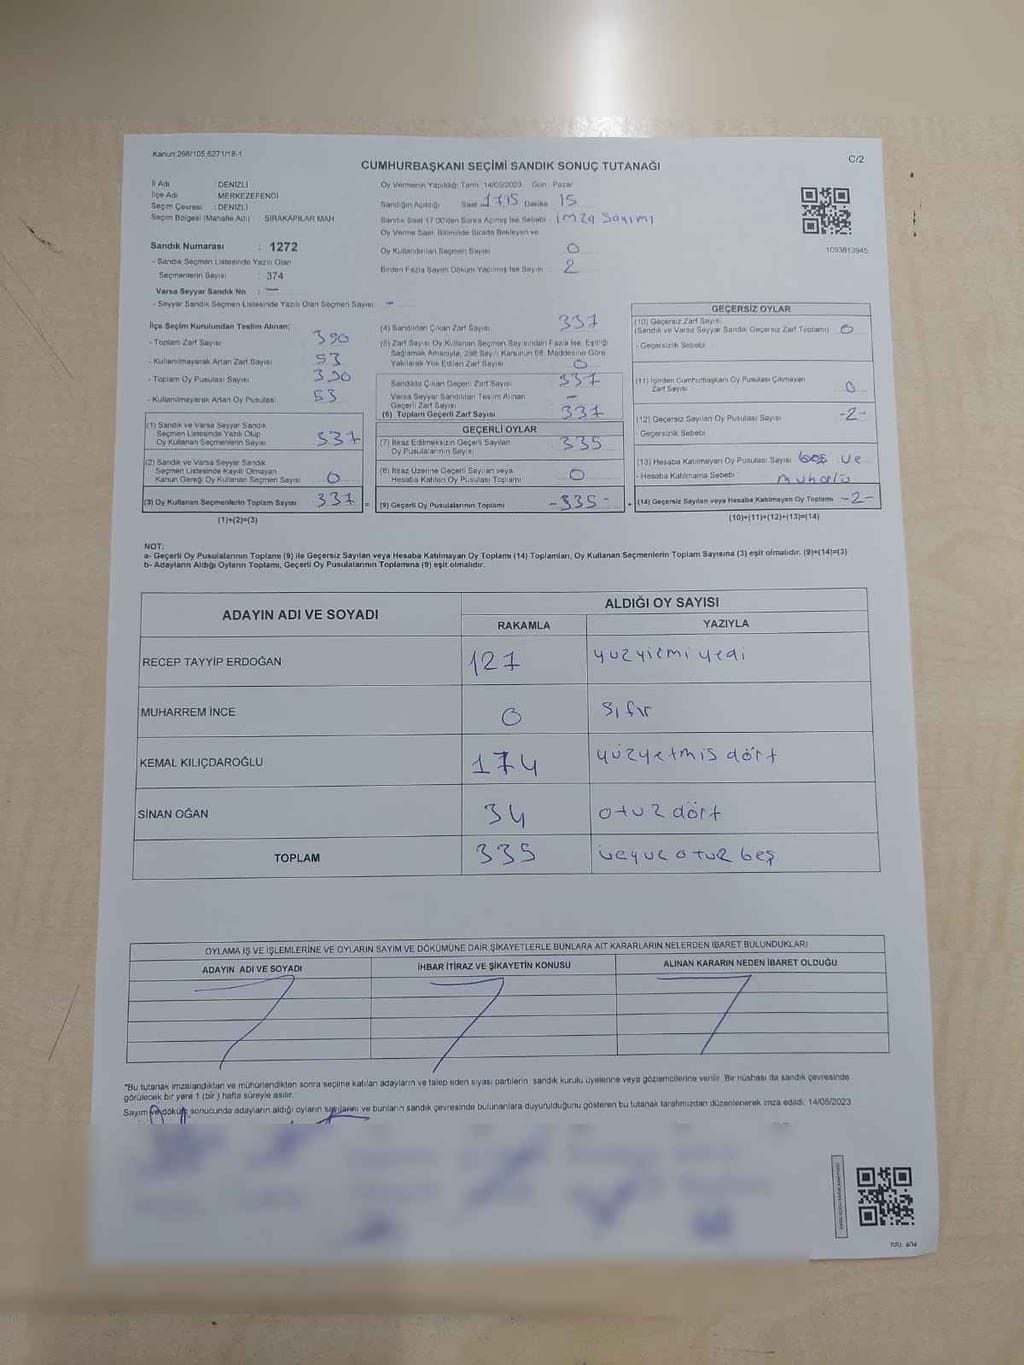 Kanun:298/105,6271/18-1
C/2
CUMHURBAŞKANI SEÇİMİ SANDIK SONUÇ TUTANAĞI
İl Adı : DENİZLİ
İlçe Adı : MERKEZEFENDİ
Seçim Çevresi : DENİZLİ
Seçim Bölgesi (Mahalle Adı) SIRAKAPILAR MAH
Sandık Numarası : 1272
- Sandık Seçmen Listesinde Yazılı Olan
Seçmenlerin Sayısı : 374
Varsa Seyyar Sandık No : —
- Seyyar Sandık Seçmen Listesinde Yazılı Olan Seçmen Sayısı: -
Oy Vermenin Yapıldığı Tarih: 14/05/2023 Gün: Pazar
Sandığın Açıldığı Saat 1715 Dakika 15
Sandık Saat 17.00'den Sonra Açılmış İse Sebebi: imza sayımı
Oy Verme Saati Bitiminde Sırada Bekleyen ve
Oy Kullandırılan Seçmen Sayısı 0
Birden Fazla Sayım Döküm Yapılmış İse Sayısı : 2
1093813945
İlçe Seçim Kurulundan Teslim Alınan;
- Toplam Zarf Sayısı : 390
- Kullanılmayarak Artan Zarf Sayısı : 53
- Toplam Oy Pusulası Sayısı : 390
- Kullanılmayarak Artan Oy Pusulası : 53
(1) Sandık ve Varsa Seyyar Sandık
Seçmen Listesinde Yazılı Olup
Oy Kullanan Seçmenlerin Sayısı 337
(2) Sandık ve Varsa Seyyar Sandık
Seçmen Listesinde Kayıtlı Olmayan
Kanun Gereği Oy Kullanan Seçmen Sayısı 0
(3) Oy Kullanan Seçmenlerin Toplam Sayısı 337
(1)+(2)=(3)
(4) Sandıktan Çıkan Zarf Sayısı : 337
(5) Zarf Sayısı Oy Kullanan Seçmen Sayısından Fazla İse, Eşitliği
Sağlamak Amacıyla, 298 Sayılı Kanunun 98. Maddesine Göre
Yakılarak Yok Edilen Zarf Sayısı : 0
Sandıkta Çıkan Geçerli Zarf Sayısı : 337
Varsa Seyyar Sandıktan Teslim Alınan
Geçerli Zarf Sayısı : -
(6) Toplam Geçerli Zarf Sayısı : 337
GEÇERLİ OYLAR
(7) İtiraz Edilmeksizin Geçerli Sayılan
Oy Pusulalarının Sayısı : 335
(8) İtiraz Üzerine Geçerli Sayılan veya
Hesaba Katılan Oy Pusulası Toplamı : 0
= (9) Geçerli Oy Pusulalarının Toplamı -335-
GEÇERSİZ OYLAR
(10) Geçersiz Zarf Sayısı
(Sandık ve Varsa Seyyar Sandık Geçersiz Zarf Toplamı) : 0
- Geçersizlik Sebebi
(11) İçinden Cumhurbaşkanı Oy Pusulası Çıkmayan
Zarf Sayısı : 0
(12) Geçersiz Sayılan Oy Pusulası Sayısı : -2-
- Geçersizlik Sebebi
(13) Hesaba Katılmayan Oy Pusulası Sayısı : boş ve
- Hesaba Katılmama Sebebi :
+ (14) Geçersiz Sayılan veya Hesaba Katılmayan Oy Toplamı -2-
(10)+(11)+(12)+(13)=(14)
NOT:
a- Geçerli Oy Pusulalarının Toplamı (9) ile Geçersiz Sayılan veya Hesaba Katılmayan Oy Toplamı (14) Toplamları, Oy Kullanan Seçmenlerin Toplam Sayısına (3) eşit olmalıdır. (9)+(14)=(3)
b- Adayların Aldığı Oyların Toplamı, Geçerli Oy Pusulalarının Toplamına (9) eşit olmalıdır.
ADAYIN ADI VE SOYADI
ALDIĞI OY SAYISI
RAKAMLA YAZIYLA
RECEP TAYYİP ERDOĞAN 127 yüzyirmi yedi
MUHARREM İNCE 0 sıfır
KEMAL KILIÇDAROĞLU 174 yüzyetmis dört
SİNAN OĞAN 34 otuz dört
TOPLAM 335 üçyüz otuz beş
OYLAMA İŞ VE İŞLEMLERİNE VE OYLARIN SAYIM VE DÖKÜMÜNE DAİR ŞİKAYETLERLE BUNLARA AİT KARARLARIN NELERDEN İBARET BULUNDUKLARI
ADAYIN ADI VE SOYADI İHBAR İTİRAZ VE ŞİKAYETİN KONUSU ALINAN KARARIN NEDEN İBARET OLDUĞU
*Bu tutanak imzalandıktan ve mühürlendikten sonra seçime katılan adayların ve talep eden siyasi partilerin, sandık kurulu üyelerine veya gözlemcilerine verilir. Bir nüshası da sandık çevresinde
görülecek bir yere 1 (bir) hafta süreyle asılır.
Sayım ve döküm sonucunda adayların aldığı oyların sayılarını ve bunların sandık çevresinde bulunanlara duyurulduğunu gösteren bu tutanak tarafımızdan düzenlenerek imza edildi. 14/05/2023